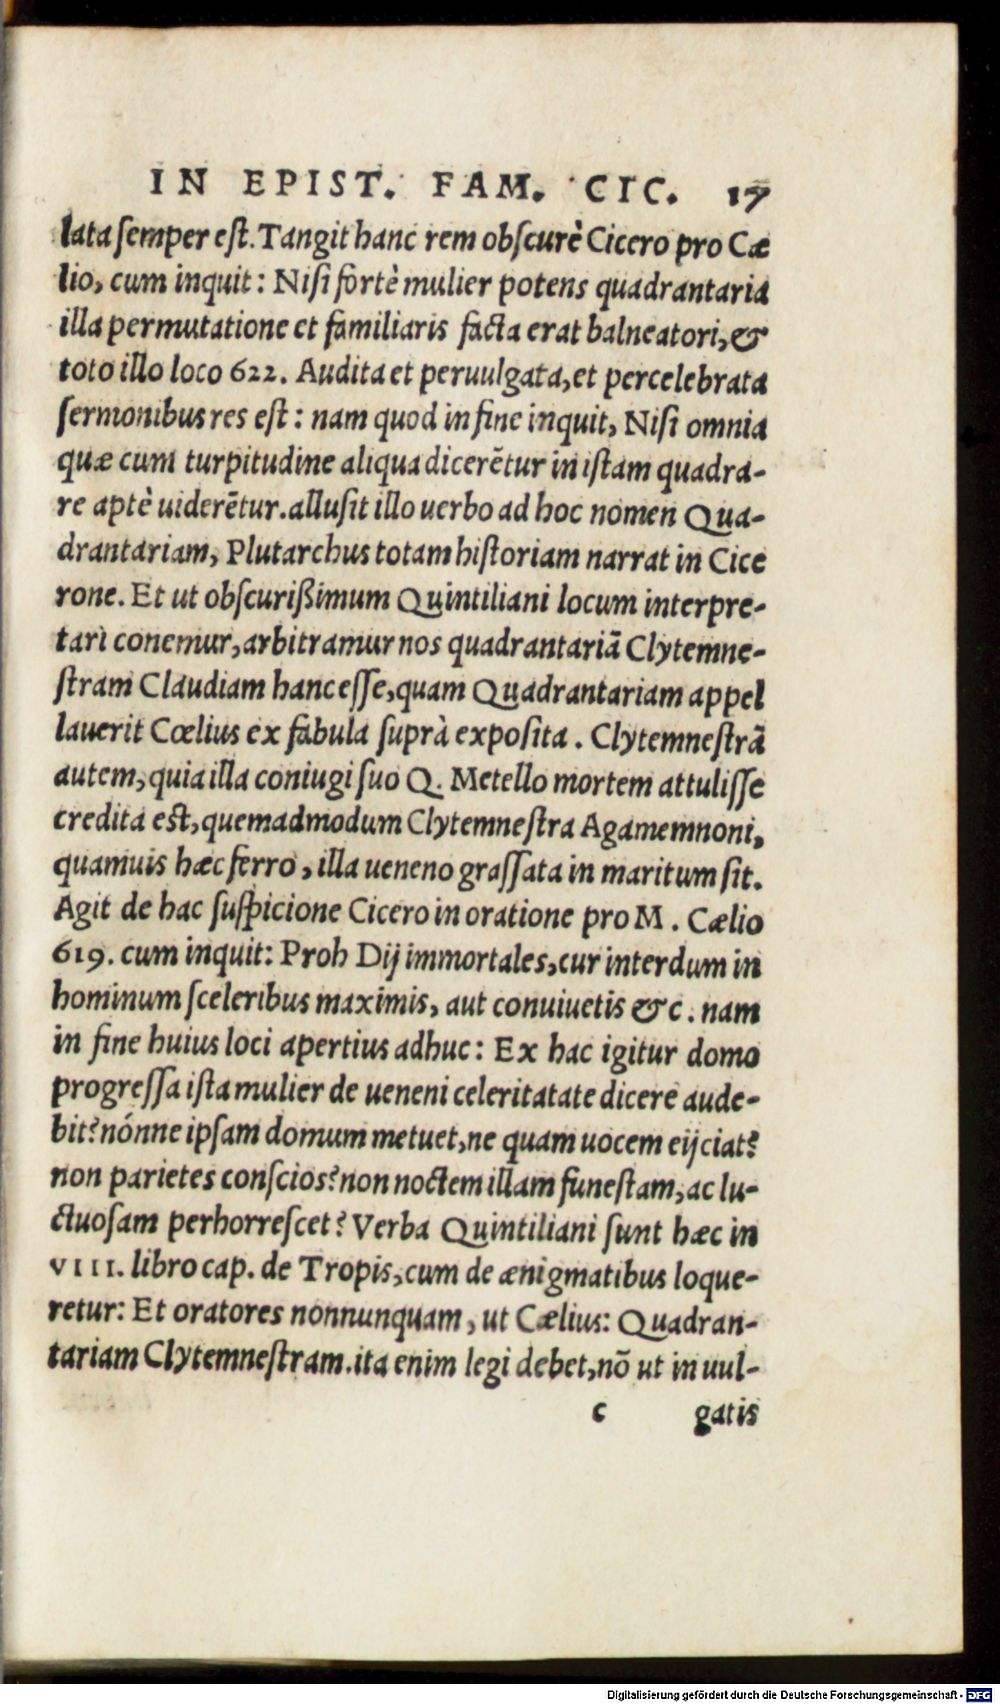 IN EPIST. FAM. CIC. 17
lata semper est. Tangit hanc rem obscurè Cicero pro Cæ
lio, cum inquit: Nisi fortè mulier potens quadrantaria
illa permutatione et familiaris facta erat balneatori, &
toto illo loco 622. Audita et peruulgata, et percelebrata
sermonibus res est: nam quod in fine inquit, Nisi omnia
quæ cum turpitudine aliqua dicerẽtur in istam quadra-
re aptè uiderẽtur. allusit illo uerbo ad hoc nomen Qua-
drantariam, Plutarchus totam historiam narrat in Cice
rone. Et ut obscurißimum Quintiliani locum interpre-
tari conemur, arbitramur nos quadrantariã Clytemne-
stram Claudiam hanc esse, quam Quadrantariam appel
lauerit Cœlius ex fabula suprà exposita. Clytemnestrã
autem, quia illa coniugi suo Q. Metello mortem attulisse
credita est, quemadmodum Clytemnestra Agamemnoni,
quamuis hæc ferro, illa ueneno grassata in maritum sit.
Agit de hac suspicione Cicero in oratione pro M. Cælio
619. cum inquit: Proh Dij immortales, cur interdum in
hominum sceleribus maximis, aut conuiuetis &c. nam
in fine huius loci apertius adhuc: Ex hac igitur domo
progressa ista mulier de ueneni celeritatate dicere aude-
bit? nónne ipsam domum metuet, ne quam uocem eijciat?
non parietes conscios? non noctem illam funestam, ac lu-
ctuosam perhorrescet? Verba Quintiliani sunt hæc in
VIII. libro cap. de Tropis, cum de ænigmatibus loque-
retur: Et oratores nonnunquam, ut Cælius: Quadran-
tariam Clytemnestram. ita enim legi debet, nõ ut in uul-
c gatis
Digitalisierung gefördert durch die Deutsche Forschungsgemeinschaft - DFG